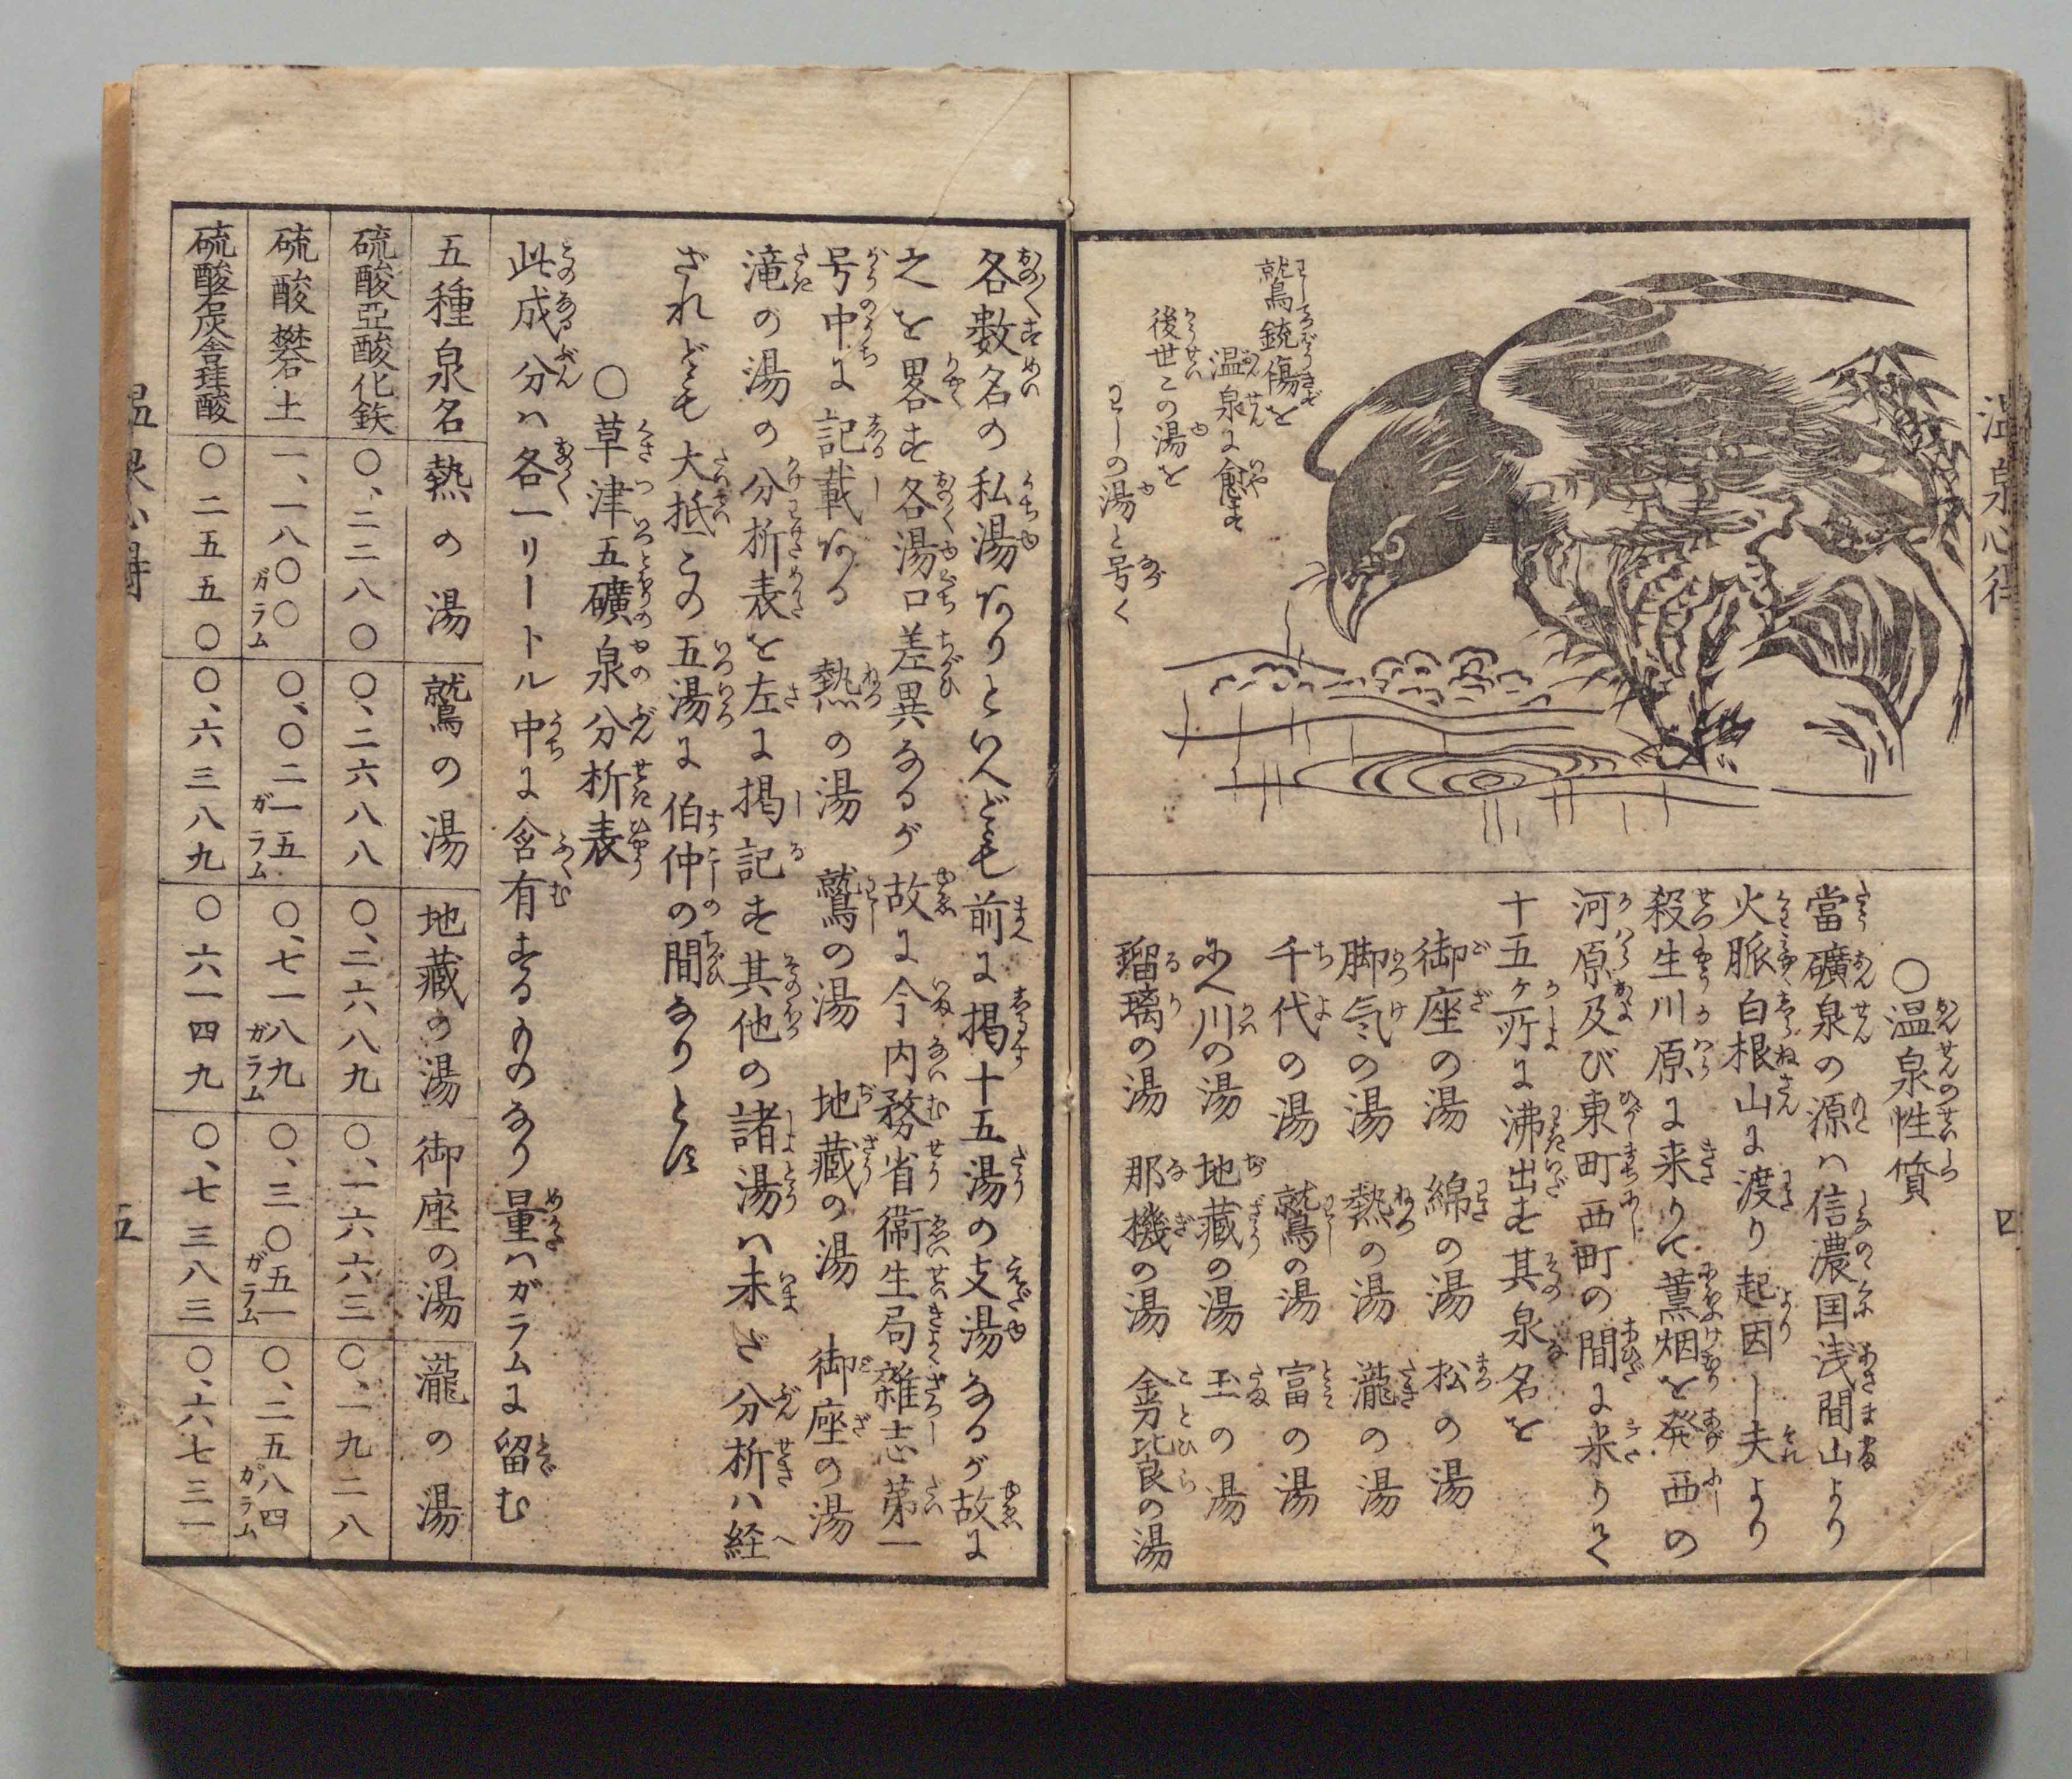 温泉心得
四
鷲銃傷を
温泉に愈す
後世この湯を
わしの湯と号く
〇温泉性質
當礦泉の源ハ信濃国浅間山より
火脈白根山に渡り起因し夫より
殺生川原に来りて薫烟を発西の
河原及び東町西町の間に来りて
十五ヶ所に沸出す其泉名を
御座の湯 綿の湯 松の湯
脚気の湯 熱の湯 瀧の湯
千代の湯 鷲の湯 富の湯
川の湯 地藏の湯 玉の湯
瑠璃の湯 那機の湯 金刀比良の湯
各数名の私湯ありといへども前に掲十五湯の支湯なるが故に
之を畧す各湯口差異なるが故に今内務省衞生局雑志第一
号中に記載ある 熱の湯 鷲の湯 地藏の湯 御座の湯
滝の湯の分析表を左に掲記す其他の諸湯ハ未ざ分析ハ経
ざれども大抵この五湯に伯仲の間なりとぞ
〇草津五礦泉分析表
此成分ハ各一リートル中に含有するものなり量ハガラムに留む
五種泉名 熱の湯 鷲の湯 地藏の湯 御座の湯 瀧の湯
硫酸亞酸化鉄 〇、二二八〇 〇、二六八八 〇、二六八九 〇、一六六三 〇、一九二八
硫酸礬土 一、一八〇〇ガラム 〇、〇二一五ガラム 〇、七一八九ガラム 〇、三〇五一ガラム 〇、二五八四ガラム
硫酸石灰含珪酸 〇二五五〇 〇、六三八九 〇六一四九 〇、七三八三 〇、六七三一
温泉心得
五